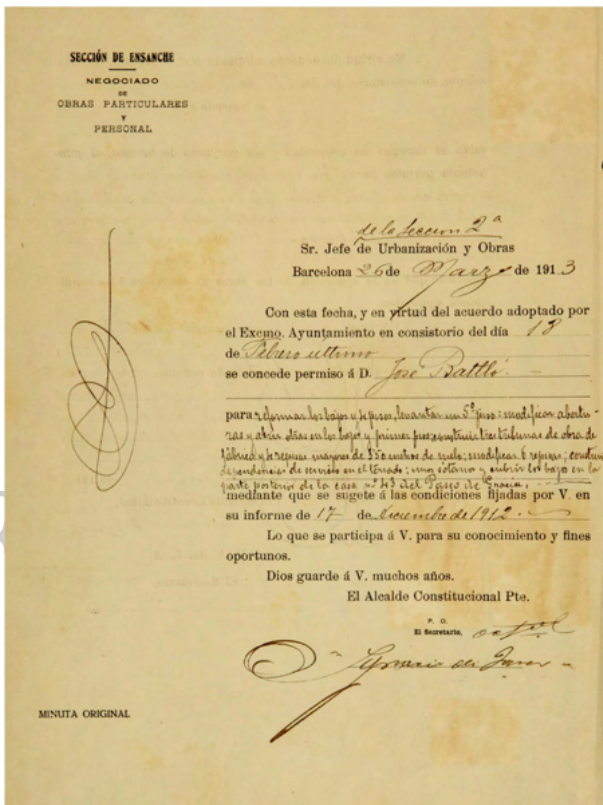 SECCIÓN DE ENSANCHE
NEGOCIADO
DE
OBRAS PARTICULARES
Y
PERSONAL
de la Seccion 2ª
Sr. Jefe de Urbanización y Obras
Barcelona 26 de Marzo de 1913
Con esta fecha, y en virtud del acuerdo adoptado por
el Excmo. Ayuntamiento en consistorio del día 18
de Febrero ultimo
se concede permiso á D. José Batlló.
para reformar los bajos y pisos, levantar un 5º piso: modificar abertu-
ras y abrir otras en los bajos y primer piso construir tres tribunas de obra de
fábrica y de mayores de 3'50 metros de vuelo; modificar 6 rejas; construir
dependencias de servicio en el terrado; un sótano y cubrir los bajos en la
parte posterior de la casa nº 43 del Paseo de Gracia,
mediante que se sugete á las condiciones fijadas por V. en
su informe de 17 de Diciembre de 1912.
Lo que se participa á V. para su conocimiento y fines
oportunos.
Dios guarde á V. muchos años.
El Alcalde Constitucional Pte.
P. O.
El Secretario,
Ignacio de
MINUTA ORIGINAL